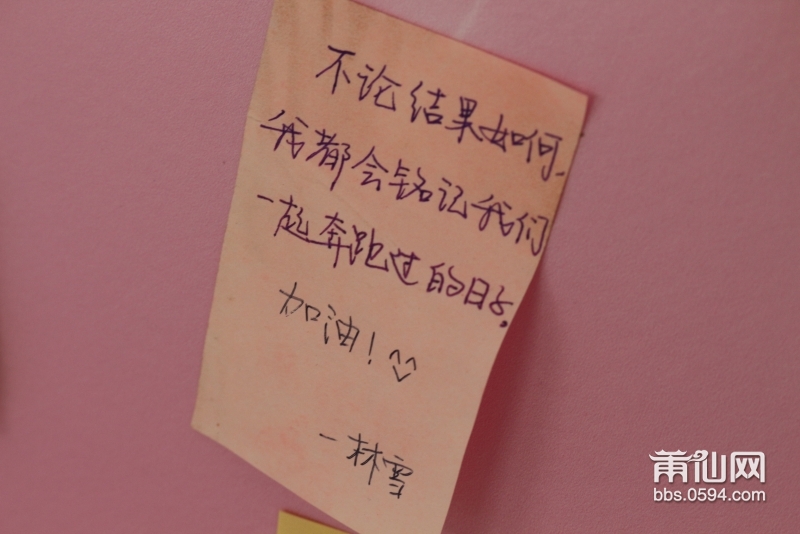 不论结果如何，
我都会铭记我们
一起奔跑过的日子。
加油！^^
—林雪
莆仙网
bbs.0594.com